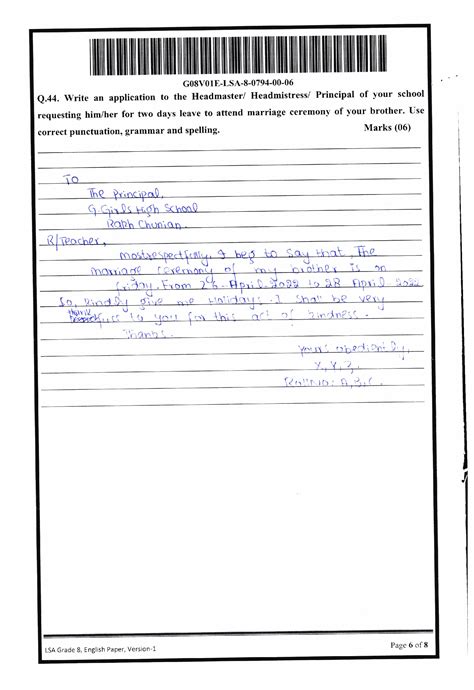 G08V01E-LSA-8-0794-00-06
Q.44. Write an application to the Headmaster/ Headmistress/ Principal of your school
requesting him/her for two days leave to attend marriage ceremony of your brother. Use
correct punctuation, grammar and spelling. Marks (06)
To
The Principal,
G.Girls High School
Ralph Chunian.
R/Teacher,
Mostrespectfully, I beg to say that, The
marriage ceremony of my brother is on
friday. From April 2022 to 28 April 2022
So, kindly give me Holidays. I shall be very
to you for this act of kindness.
Thanks.
yours obediently,
X, Y, Z.
RollNo: A,B,C.
LSA Grade 8, English Paper, Version-1
Page 6 of 8